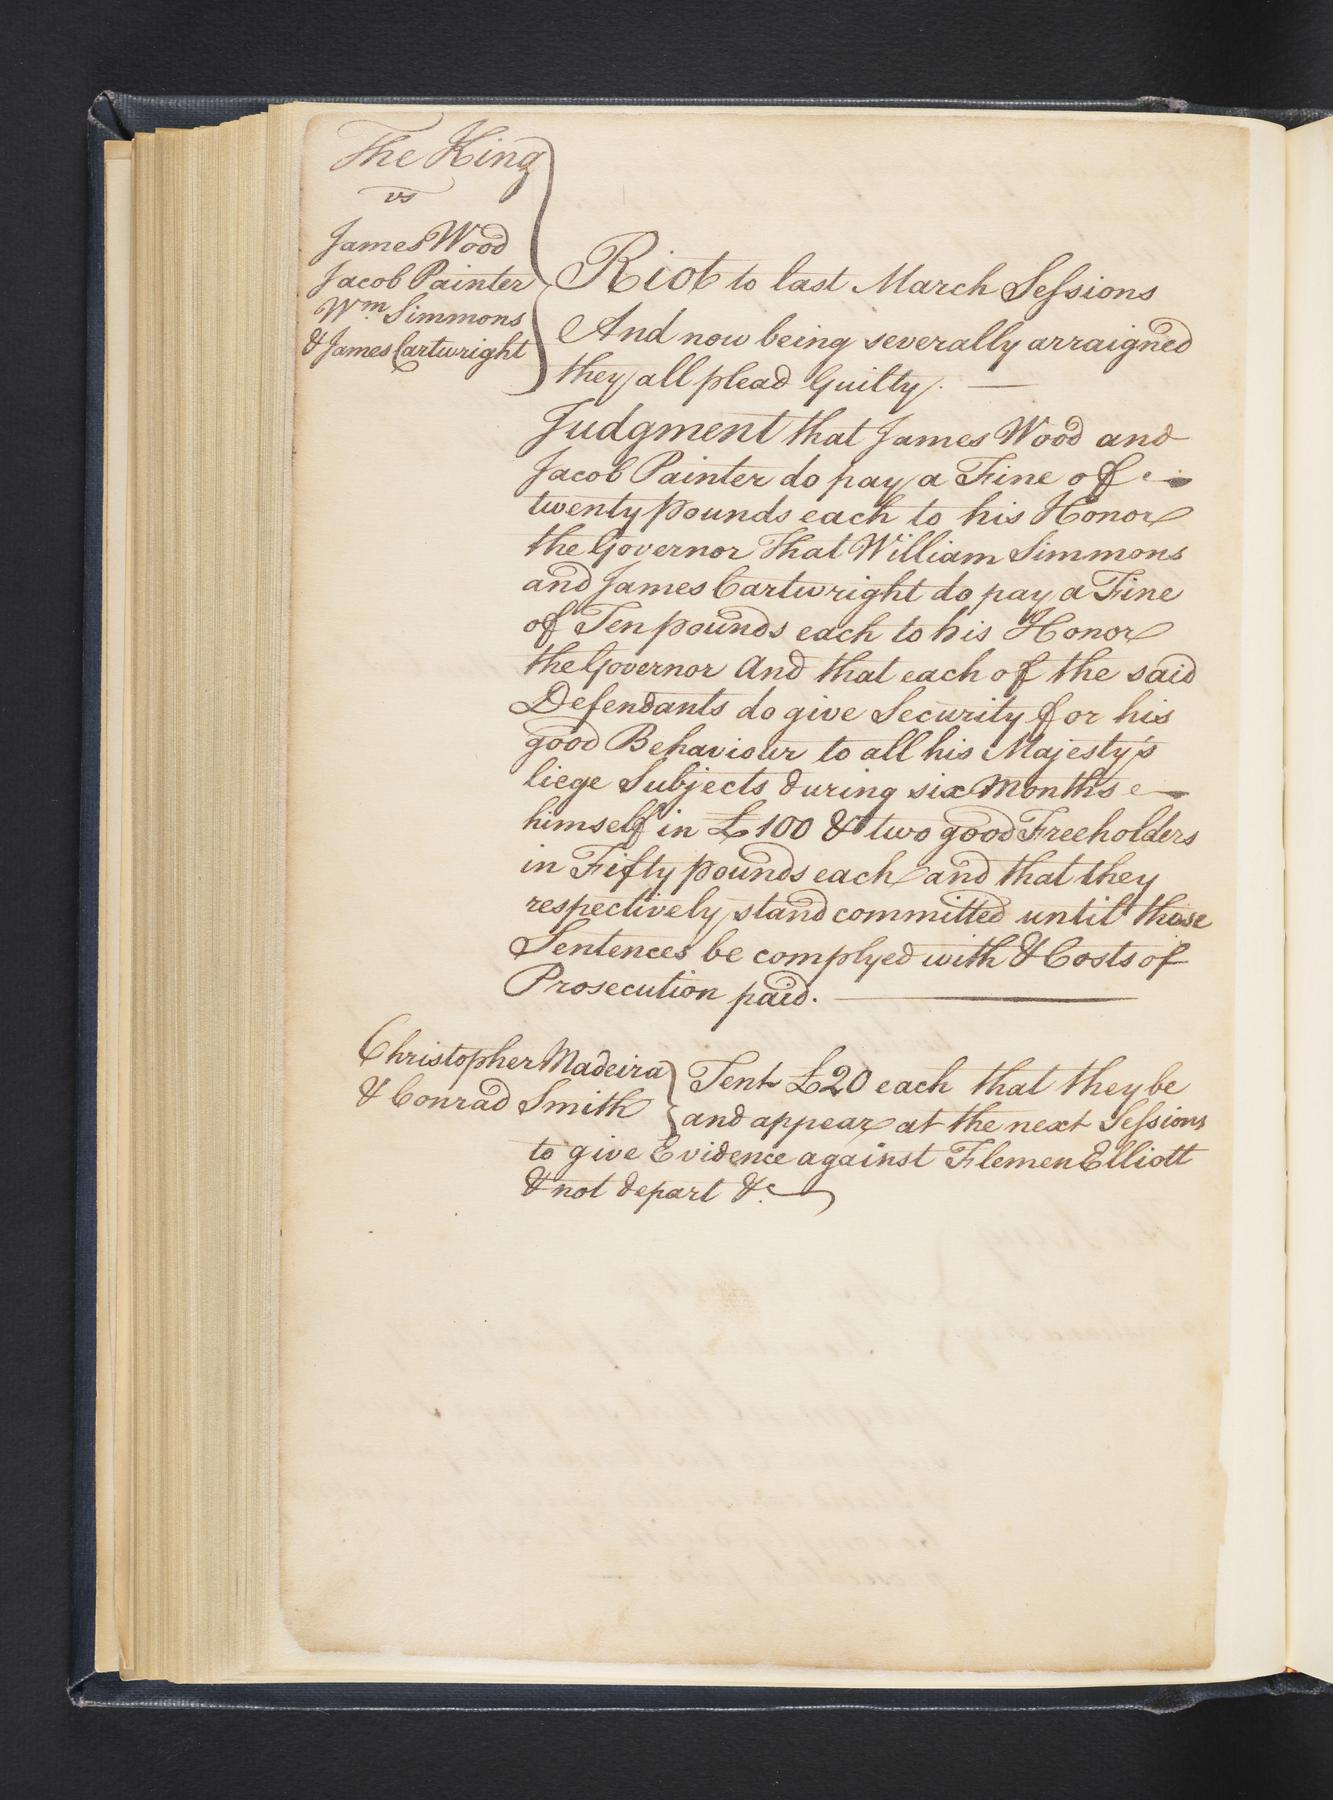 The King
vs
James Wood
Jacob Painter
Wm Simmons
& James Cartwright
Riot to last March Sessions
And now being severally arraigned
they all plead Guilty. —
Judgment that James Wood and
Jacob Painter do pay a Fine of
twenty pounds each to his Honor
the Governor That William Simmons
and James Cartwright do pay a Fine
of Ten pounds each to his Honor
the Governor And that each of the said
Defendants do give Security for his
good Behaviour to all his Majesty's
liege Subjects during six Months
himself in £100 & two good Freeholders
in Fifty pounds each and that they
respectively stand committed until these
Sentences be complyed with & Costs of
Prosecution paid. —
Christopher Madeira
& Conrad Smith
Tent £20 each that they be
and appear at the next Sessions
to give Evidence against Flemen Elliott
& not depart &c